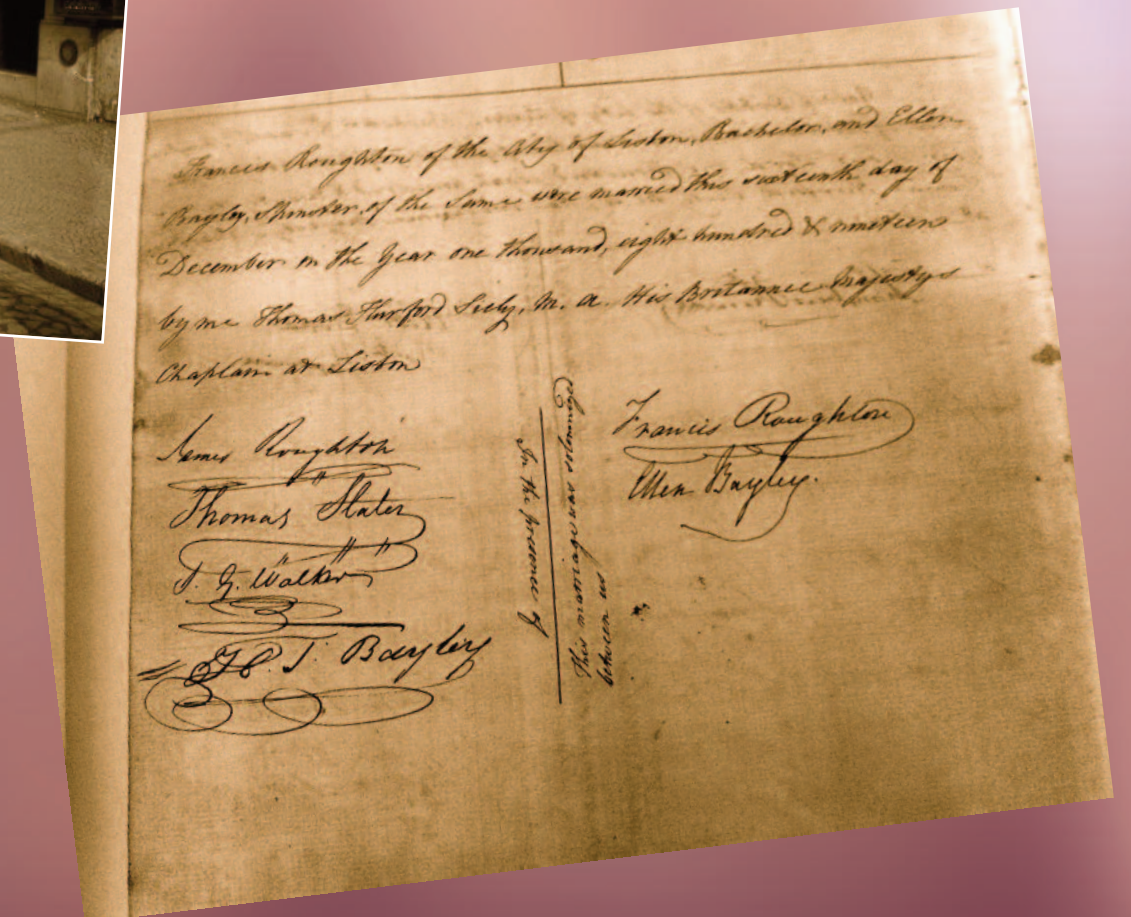 Francis Roughton of the City of Lisbon, Bachelor, and Ellen
Bayley, Spinster, of the Same were married this sixteenth day of
December in the Year one thousand, eight hundred & nineteen
by me Thomas Harford Siely, M. A. His Britannic Majestys
Chaplain at Lisbon
James Roughton
Thomas Slater
J. G. Walker
H. T. Bayley
In the presence of
This marriage was solemnized
between us
Francis Roughton
Ellen Bayley.